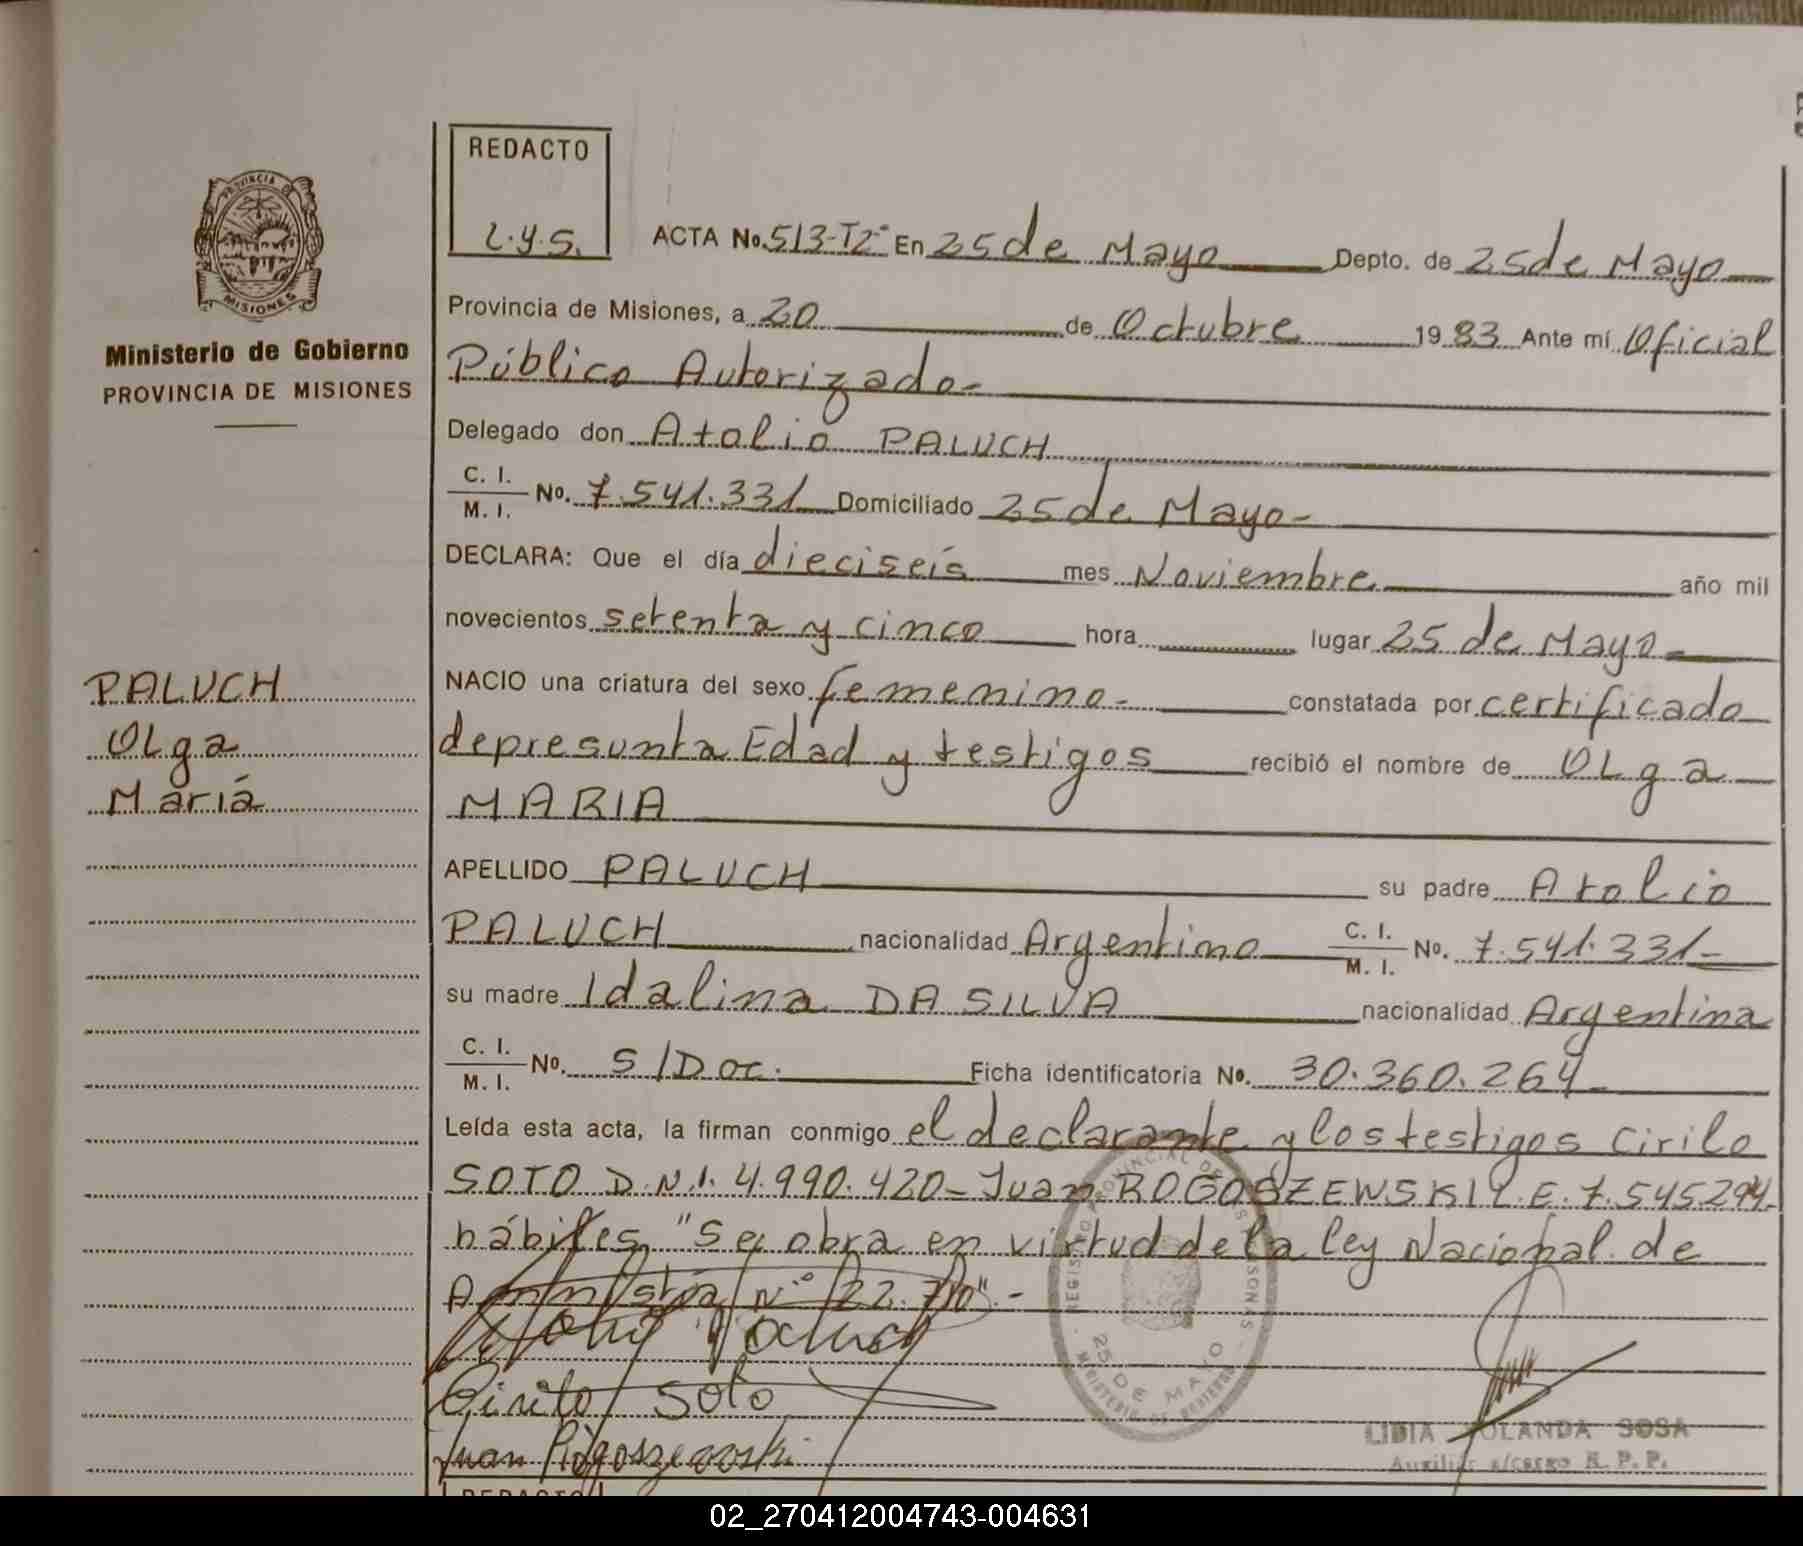 REDACTO
L.Y.S.
PROVINCIA DE
MISIONES
Ministerio de Gobierno
PROVINCIA DE MISIONES
ACTA No. 513-T2º En 25 de Mayo Depto. de 25 de Mayo
Provincia de Misiones, a 20 de Octubre 1983 Ante mí Oficial
Público Autorizado-
Delegado don Atolio PALUCH
C. I.
M. I. No. 7.541.331 Domiciliado 25 de Mayo-
DECLARA: Que el día dieciseís mes Noviembre año mil
novecientos setenta y cinco hora lugar 25 de Mayo-
NACIO una criatura del sexo femenino- constatada por certificado
depresunta Edad y testigos recibió el nombre de OLga
MARIA
PALUCH
OLga
María
APELLIDO PALUCH su padre Atolio
PALUCH nacionalidad Argentino C. I.
M. I. No. 7.541.331-
su madre Idalina DA SILVA nacionalidad Argentina
C. I.
M. I. No. S/Doc. Ficha identificatoria No. 30.360.264-
Leída esta acta, la firman conmigo el declarante y los testigos Cirilo
SOTO D.N.I. 4.990.420- Juan ROGOSZEWSKI L.E. 7.545294-
hábiles, "Se obra en virtud de la ley Nacional de
Amnistía Nº 22.710".-
Cirilo Soto
Juan Rogoszewski
REGISTRO PROVINCIAL DE LAS PERSONAS
25 DE MAYO
MINISTERIO DE GOBIERNO
LIDIA YOLANDA SOSA
Auxiliar a/cargo R. P. P.
REDACTO
02_270412004743-004631